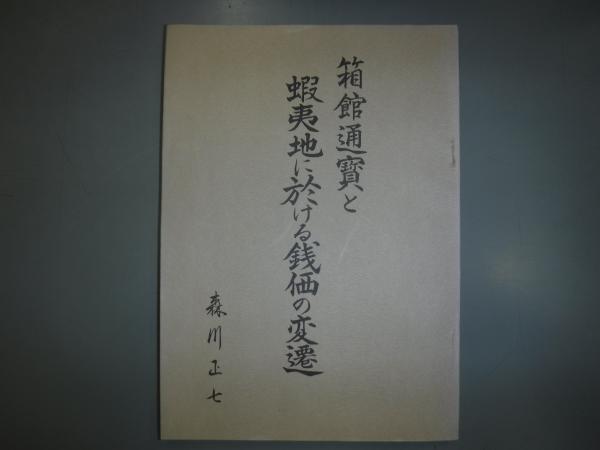 箱館通寳と
蝦夷地に於ける銭価の変遷
森川正七